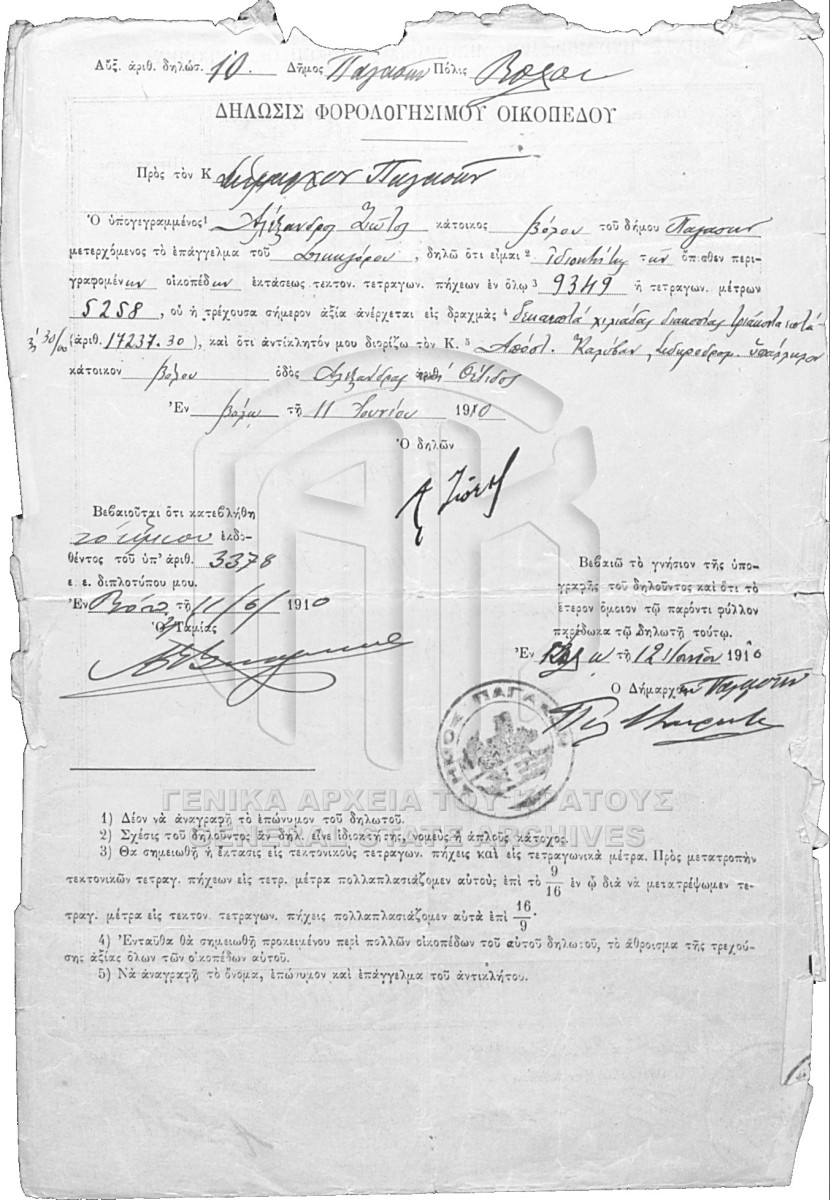 Αὔξ. ἀριθ. δηλώσ. 10. Δῆμος Παγασῶν Πόλις Βόλου
ΔΗΛΩΣΙΣ ΦΟΡΟΛΟΓΗΣΙΜΟΥ ΟΙΚΟΠΕΔΟΥ
Πρὸς τὸν Κ. Δήμαρχον Παγασῶν
Ὁ ὑπογεγραμμένος¹ Ἀλέξανδρος Ζῶτος κάτοικος Βόλου τοῦ δήμου Παγασῶν
μετερχόμενος τὸ ἐπάγγελμα τοῦ Δικηγόρου, δηλῶ ὅτι εἶμαι² ἰδιοκτήτης τῶν ὄπισθεν περι-
γραφομένων οἰκοπέδων ἐκτάσεως τεκτον. τετραγων. πήχεων ἐν ὅλῳ³ 9349 ἢ τετραγων. μέτρων
5258, οὗ ἡ τρέχουσα σήμερον ἀξία ἀνέρχεται εἰς δραχμὰς⁴ δεκαεπτά χιλιάδας διακοσίας τριάκοντα ἑπτά
ϗ 30/00 (ἀριθ. 17237.30), καὶ ὅτι ἀντίκλητόν μου διορίζω τὸν Κ.⁵ Ἀποστ. σιδηροδρομ. ὑπάλληλον
κάτοικον Βόλου ὁδὸς Ἀλεξάνδρας ἀριθ. Θέτιδος
Ἐν Βόλῳ τῇ 11 Ἰουνίου 1910
Ὁ δηλῶν
Α. Ζῶτος
Βεβαιοῦται ὅτι κατεβλήθη
τὸ τίμιον ἐκδο-
θέντος τοῦ ὑπ' ἀριθ. 3378
ε. ε. διπλοτύπου μου.
Ἐν Βόλῳ τῇ 11/6/1910
Ὁ Ταμίας
Βεβαιῶ τὸ γνήσιον τῆς ὑπο-
γραφῆς τοῦ δηλοῦντος καὶ ὅτι τὸ
ἕτερον ὅμοιον τῷ παρόντι φύλλον
παρέδωκα τῷ δηλωτῇ τούτῳ.
Ἐν Βόλῳ τῇ 12 Ἰουνίου 1910
Ὁ Δήμαρχος Παγασῶν
ΔΗΜΟΣ ΠΑΓΑΣΩΝ
ΓΕΝΙΚΑ ΑΡΧΕΙΑ ΤΟΥ ΚΡΑΤΟΥΣ
GENERAL STATE ARCHIVES
1) Δέον νὰ ἀναγραφῇ τὸ ἐπώνυμον τοῦ δηλωτοῦ.
2) Σχέσις τοῦ δηλοῦντος ἂν δηλ. εἶνε ἰδιοκτήτης, νομεὺς ἢ ἁπλοῦς κάτοχος.
3) Θὰ σημειωθῇ ἡ ἔκτασις εἰς τεκτονικοὺς τετραγων. πήχεις καὶ εἰς τετραγωνικὰ μέτρα. Πρὸς μετατροπὴν
τεκτονικῶν τετραγ. πήχεων εἰς τετρ. μέτρα πολλαπλασιάζομεν αὐτοὺς ἐπὶ τὸ 9/16 ἐν ᾧ διὰ νὰ μετατρέψωμεν τε-
τραγ. μέτρα εἰς τεκτον. τετραγων. πήχεις πολλαπλασιάζομεν αὐτὰ ἐπὶ 16/9.
4) Ἐνταῦθα θὰ σημειωθῇ προκειμένου περὶ πολλῶν οἰκοπέδων τοῦ αὐτοῦ δηλωτοῦ, τὸ ἄθροισμα τῆς τρεχού-
σης ἀξίας ὅλων τῶν οἰκοπέδων αὐτοῦ.
5) Νὰ ἀναγραφῇ τὸ ὄνομα, ἐπώνυμον καὶ ἐπάγγελμα τοῦ ἀντικλήτου.